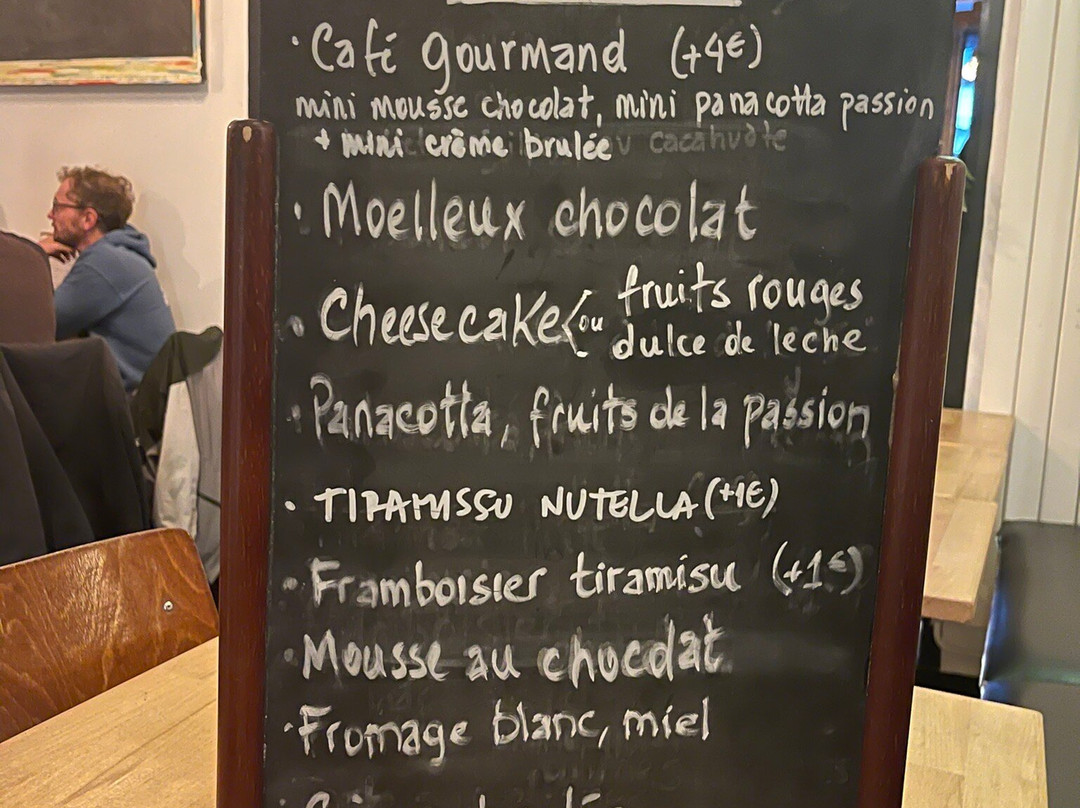 · Café gourmand (+4€)
mini mousse chocolat, mini panacotta passion
+ mini crème brulée
· Moelleux chocolat
· Cheesecake ou fruits rouges
dulce de leche
· Panacotta, fruits de la passion
· TIRAMISSU NUTELLA (+1€)
· Framboisier tiramisu (+1€)
· Mousse au chocolat
· Fromage blanc, miel